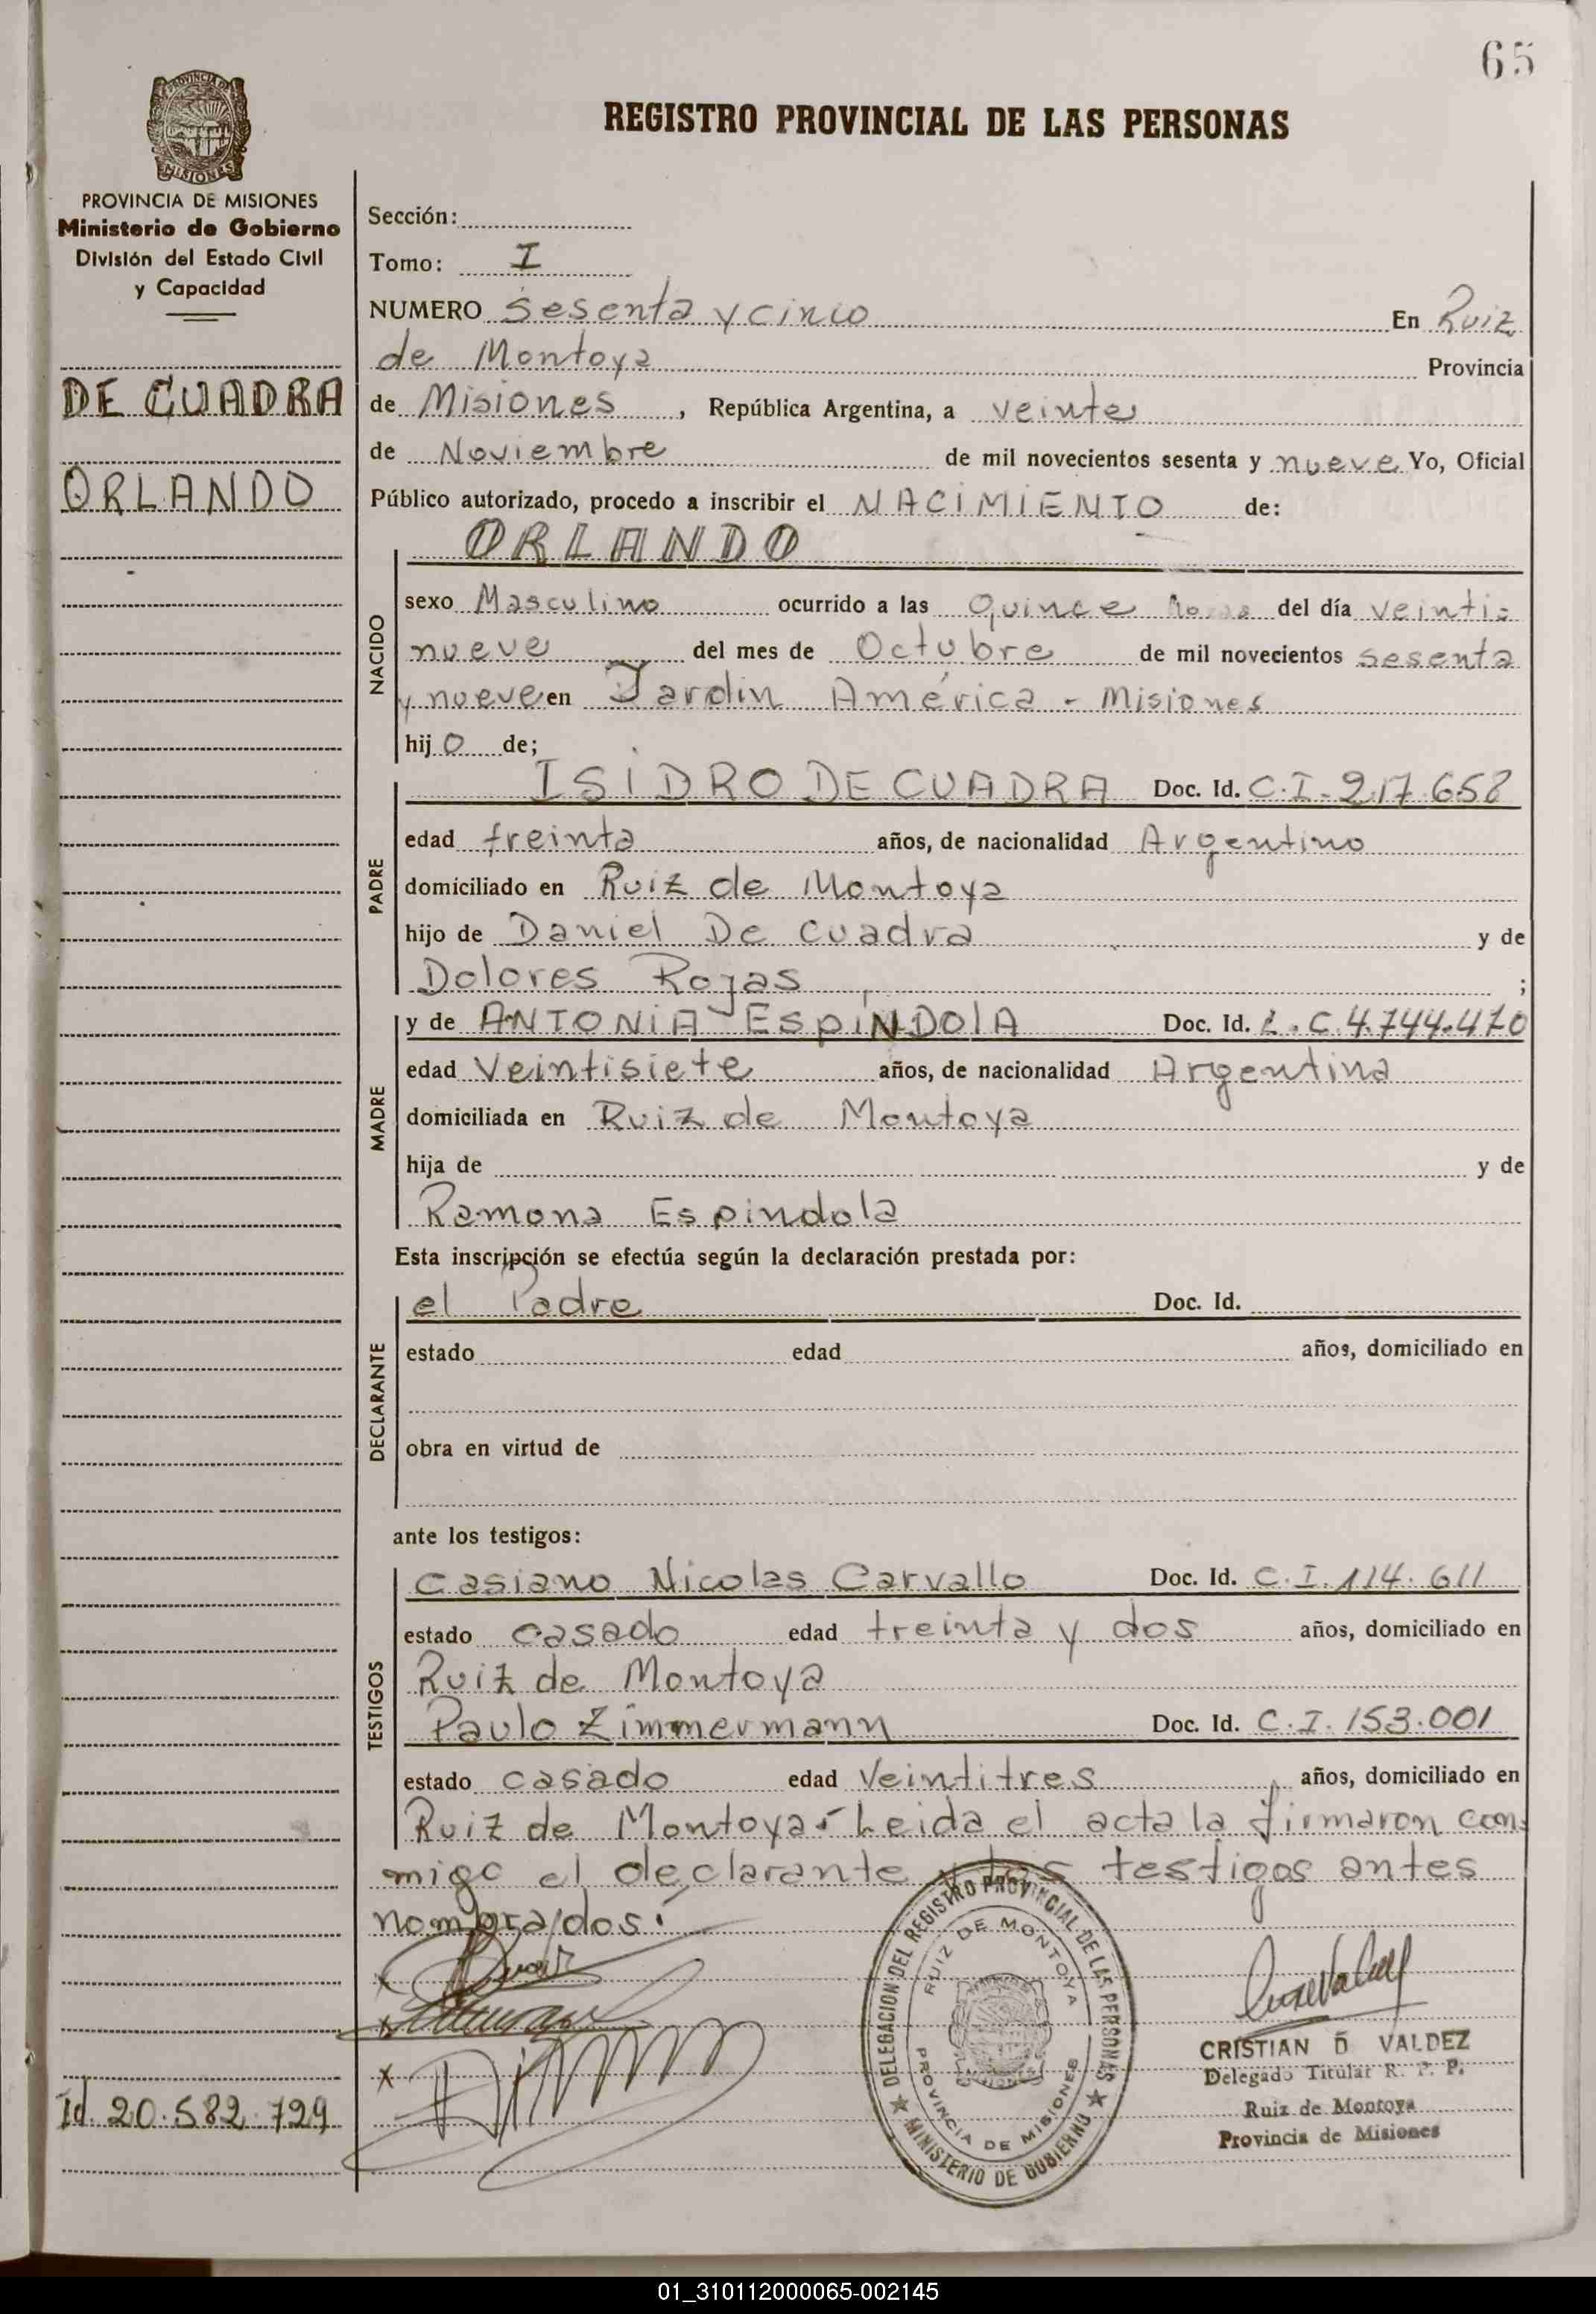 65
PROVINCIA DE
MISIONES
REGISTRO PROVINCIAL DE LAS PERSONAS
PROVINCIA DE MISIONES
Ministerio de Gobierno
División del Estado Civil
y Capacidad
DE CUADRA
ORLANDO
Id. 20.582.729
Sección:
Tomo: I
NUMERO Sesenta y cinco En Ruiz
de Montoya Provincia
de Misiones, República Argentina, a veinte
de Noviembre de mil novecientos sesenta y nueve Yo, Oficial
Público autorizado, procedo a inscribir el NACIMIENTO de:
ORLANDO
NACIDO
sexo Masculino ocurrido a las Quince horas del día veinti-
nueve del mes de Octubre de mil novecientos sesenta
y nueve en Jardin América - Misiones
hijo de;
PADRE
ISIDRO DE CUADRA Doc. Id. C.I. 217.658
edad treinta años, de nacionalidad Argentino
domiciliado en Ruiz de Montoya
hijo de Daniel De Cuadra y de
Dolores Rojas ;
MADRE
y de ANTONIA ESPINDOLA Doc. Id. L.C. 4.744.470
edad Veintisiete años, de nacionalidad Argentina
domiciliada en Ruiz de Montoya
hija de y de
Ramona Espindola
Esta inscripción se efectúa según la declaración prestada por:
DECLARANTE
el Padre Doc. Id.
estado edad años, domiciliado en
obra en virtud de
ante los testigos:
TESTIGOS
Casiano Nicolas Carvallo Doc. Id. C.I. 114.611
estado casado edad treinta y dos años, domiciliado en
Ruiz de Montoya
Paulo Zimmermann Doc. Id. C.I. 153.001
estado casado edad Veintitres años, domiciliado en
Ruiz de Montoya.- Leida el acta la firmaron con-
migo el declarante y los testigos antes
nombrados.
DELEGACION DEL REGISTRO PROVINCIAL DE LAS PERSONAS
MINISTERIO DE GOBIERNO
RUIZ DE MONTOYA
PROVINCIA DE MISIONES
CRISTIAN D VALDEZ
Delegado Titular R. P. P.
Ruiz de Montoya
Provincia de Misiones
01_310112000065-002145